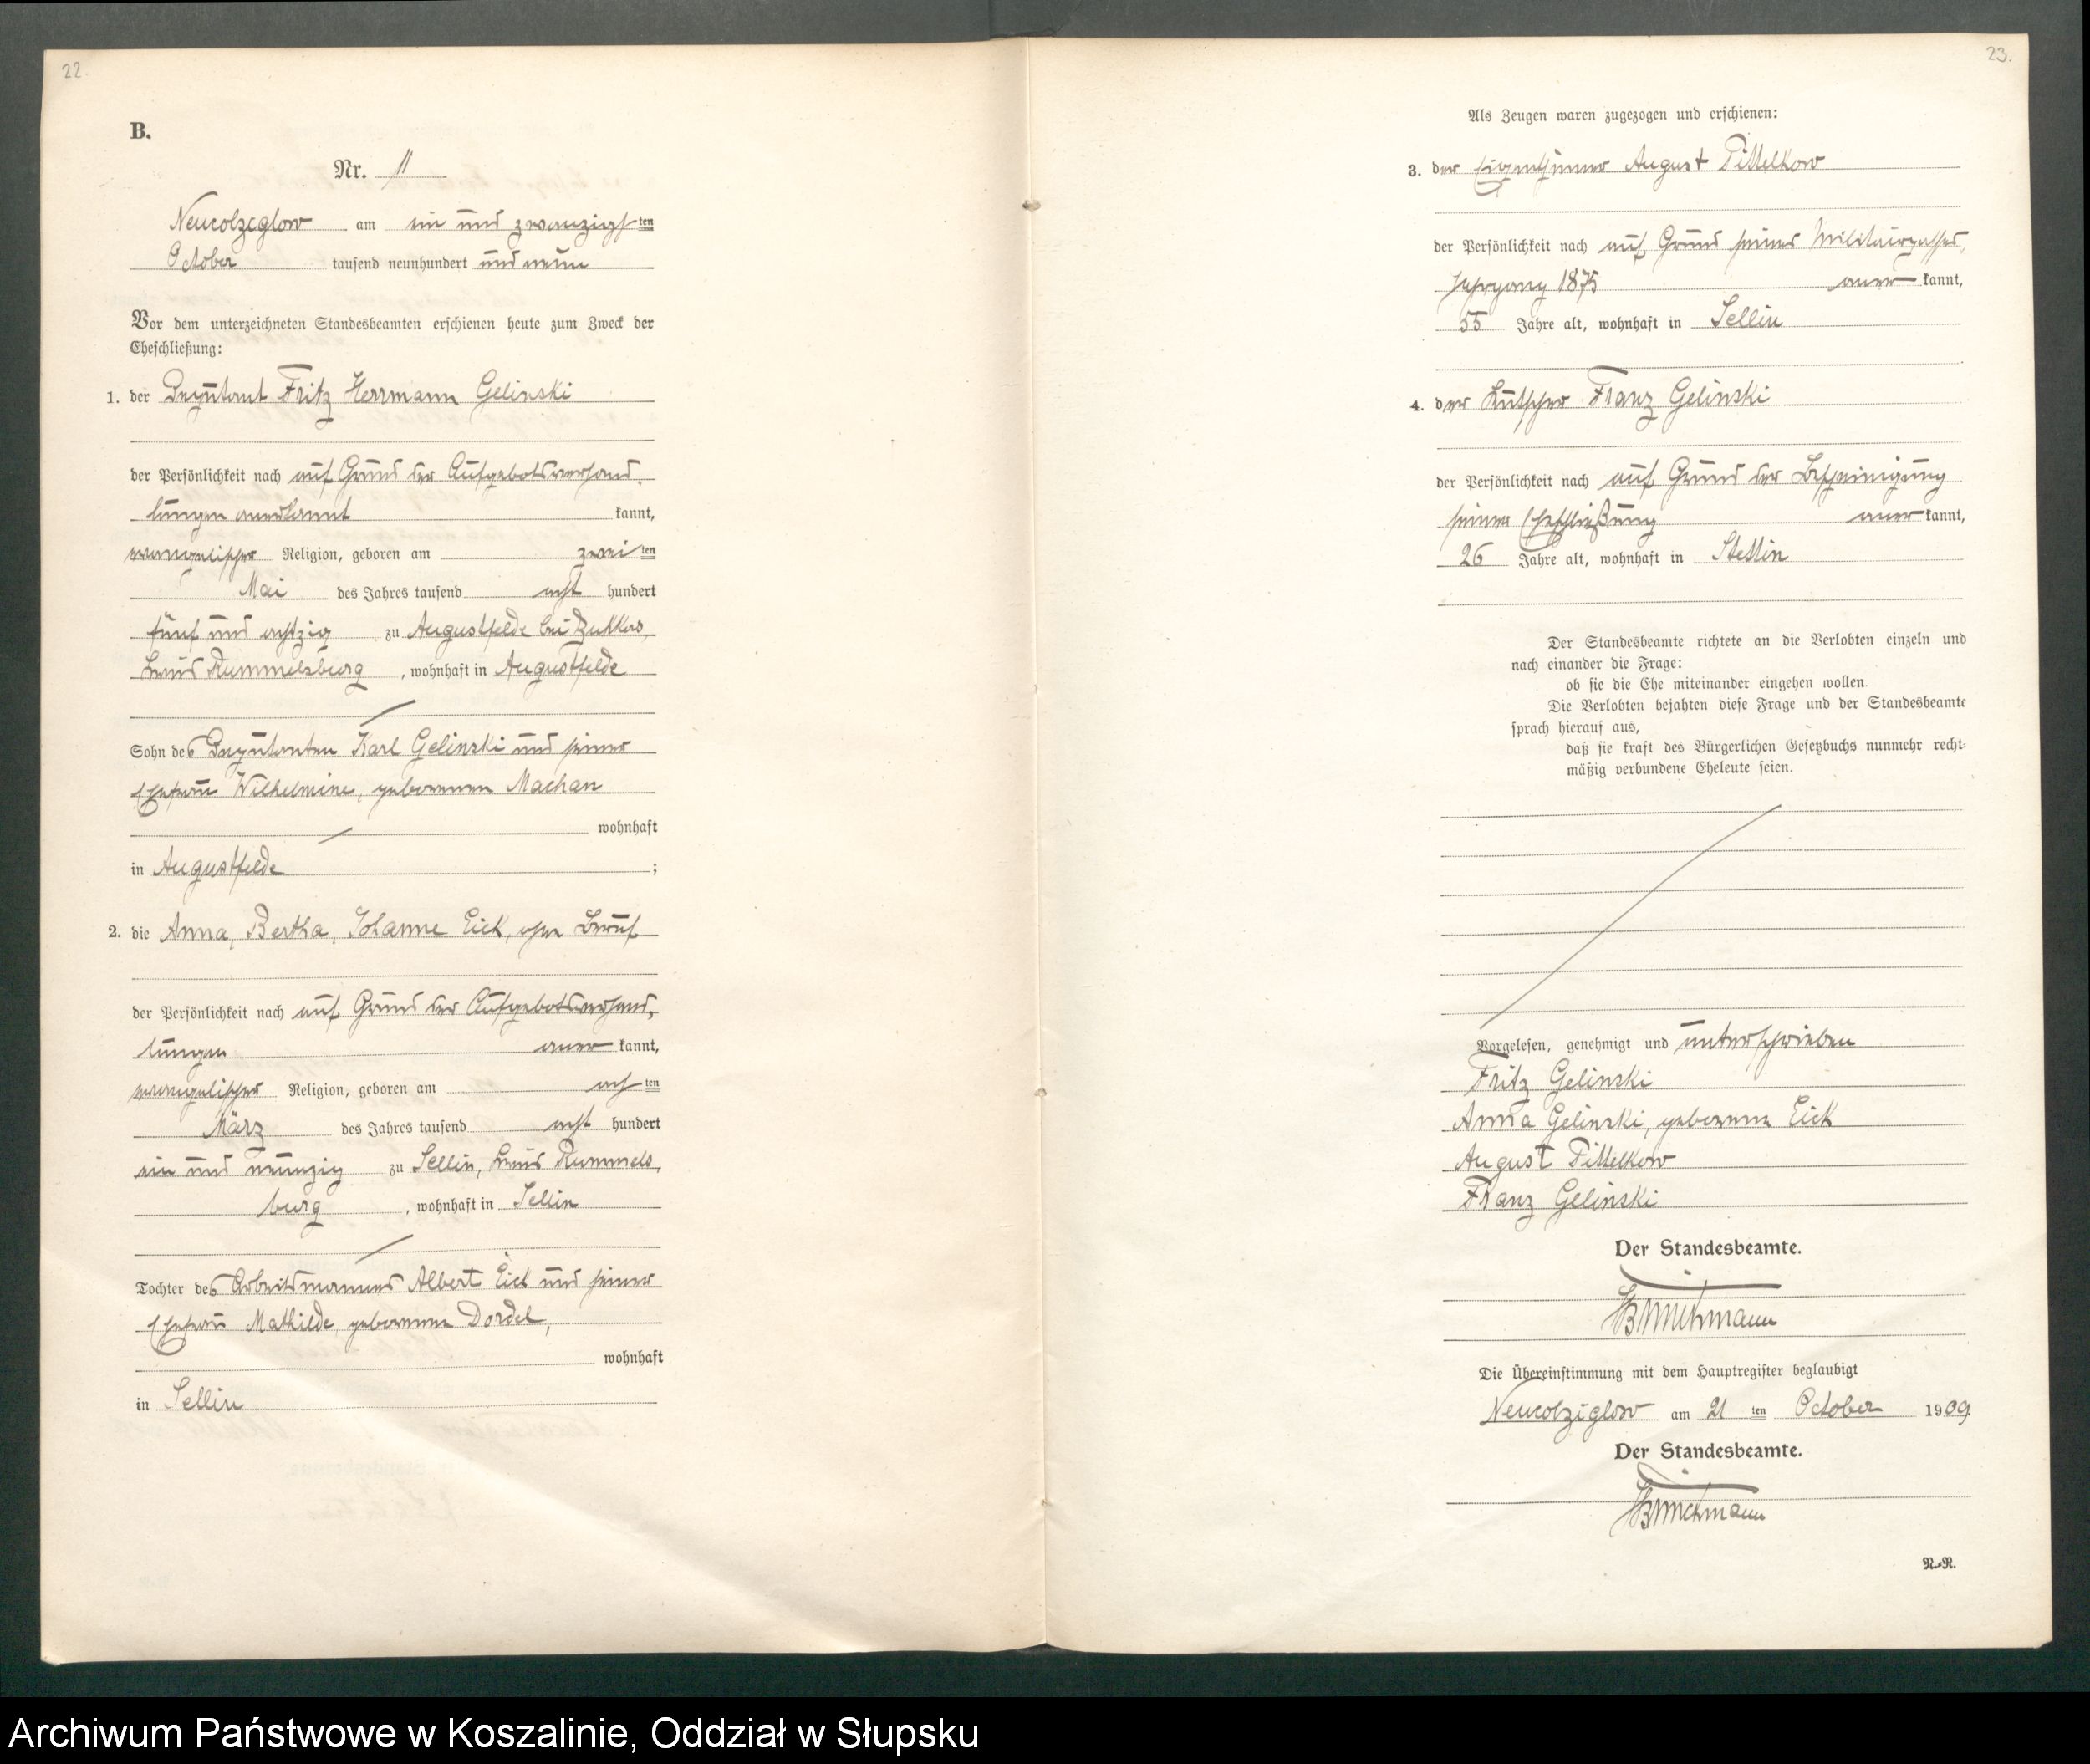 22.
B.
Nr. 11
Neucolziglow am ein und zwanzigsten
October tausend neunhundert und neun
Vor dem unterzeichneten Standesbeamten erschienen heute zum Zweck der
Eheschließung:
1. der Deputant Fritz Herrmann Gelinski
der Persönlichkeit nach auf Grund der Aufgebotsverhand-
lungen anerkannt kannt,
evangelischer Religion, geboren am zweiten
Mai des Jahres tausend acht hundert
fünf und achtzig zu Augustfelde bei
Kreis Rummelsburg, wohnhaft in Augustfelde
Sohn des Deputanten Karl Gelinski und seiner
Ehefrau Wilhelmine, geborenen Machan
wohnhaft
in Augustfelde ;
2. die Anna, Bertha, Johanne Eick, ohne Beruf
der Persönlichkeit nach auf Grund der Aufgebotsverhand-
lungen aner kannt,
evangelischer Religion, geboren am achten
März des Jahres tausend acht hundert
ein und neunzig zu Sellin, Kreis Rummels-
burg, wohnhaft in Sellin
Tochter des Arbeitsmannes Albert Eick und seiner
Ehefrau Mathilde, geborenen Dordel,
wohnhaft
in Sellin
23.
Als Zeugen waren zugezogen und erschienen:
3. der Eigenthümer August Pittelkow
der Persönlichkeit nach auf Grund seines Militairpasses,
Jahrgang 1875 aner kannt,
55 Jahre alt, wohnhaft in Sellin
4. der Kutscher Franz Gelinski
der Persönlichkeit nach auf Grund der Bescheinigung
seiner Eheschließung aner kannt,
26 Jahre alt, wohnhaft in Stettin
Der Standesbeamte richtete an die Verlobten einzeln und
nach einander die Frage:
ob sie die Ehe miteinander eingehen wollen.
Die Verlobten bejahten diese Frage und der Standesbeamte
sprach hierauf aus,
daß sie kraft des Bürgerlichen Gesetzbuchs nunmehr recht-
mäßig verbundene Eheleute seien.
Vorgelesen, genehmigt und unterschrieben
Fritz Gelinski
Anna Gelinski, geborene Eick
August Pittelkow
Franz Gelinski
Der Standesbeamte.
Die Übereinstimmung mit dem Hauptregister beglaubigt
Neucolziglow am 21 ten October 1909
Der Standesbeamte.
N.-R.
Archiwum Państwowe w Koszalinie, Oddział w Słupsku